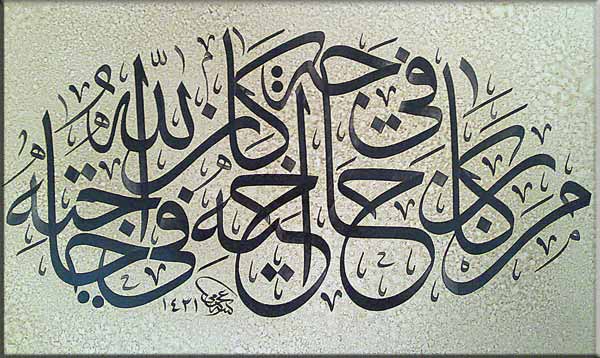 من كان في حاجة أخيه كان الله في حاجته
١٤٢١